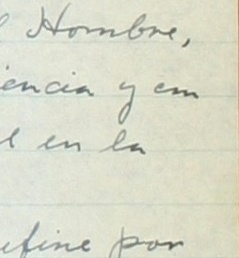 l Hombre,
iencia y em
l en la
efine por